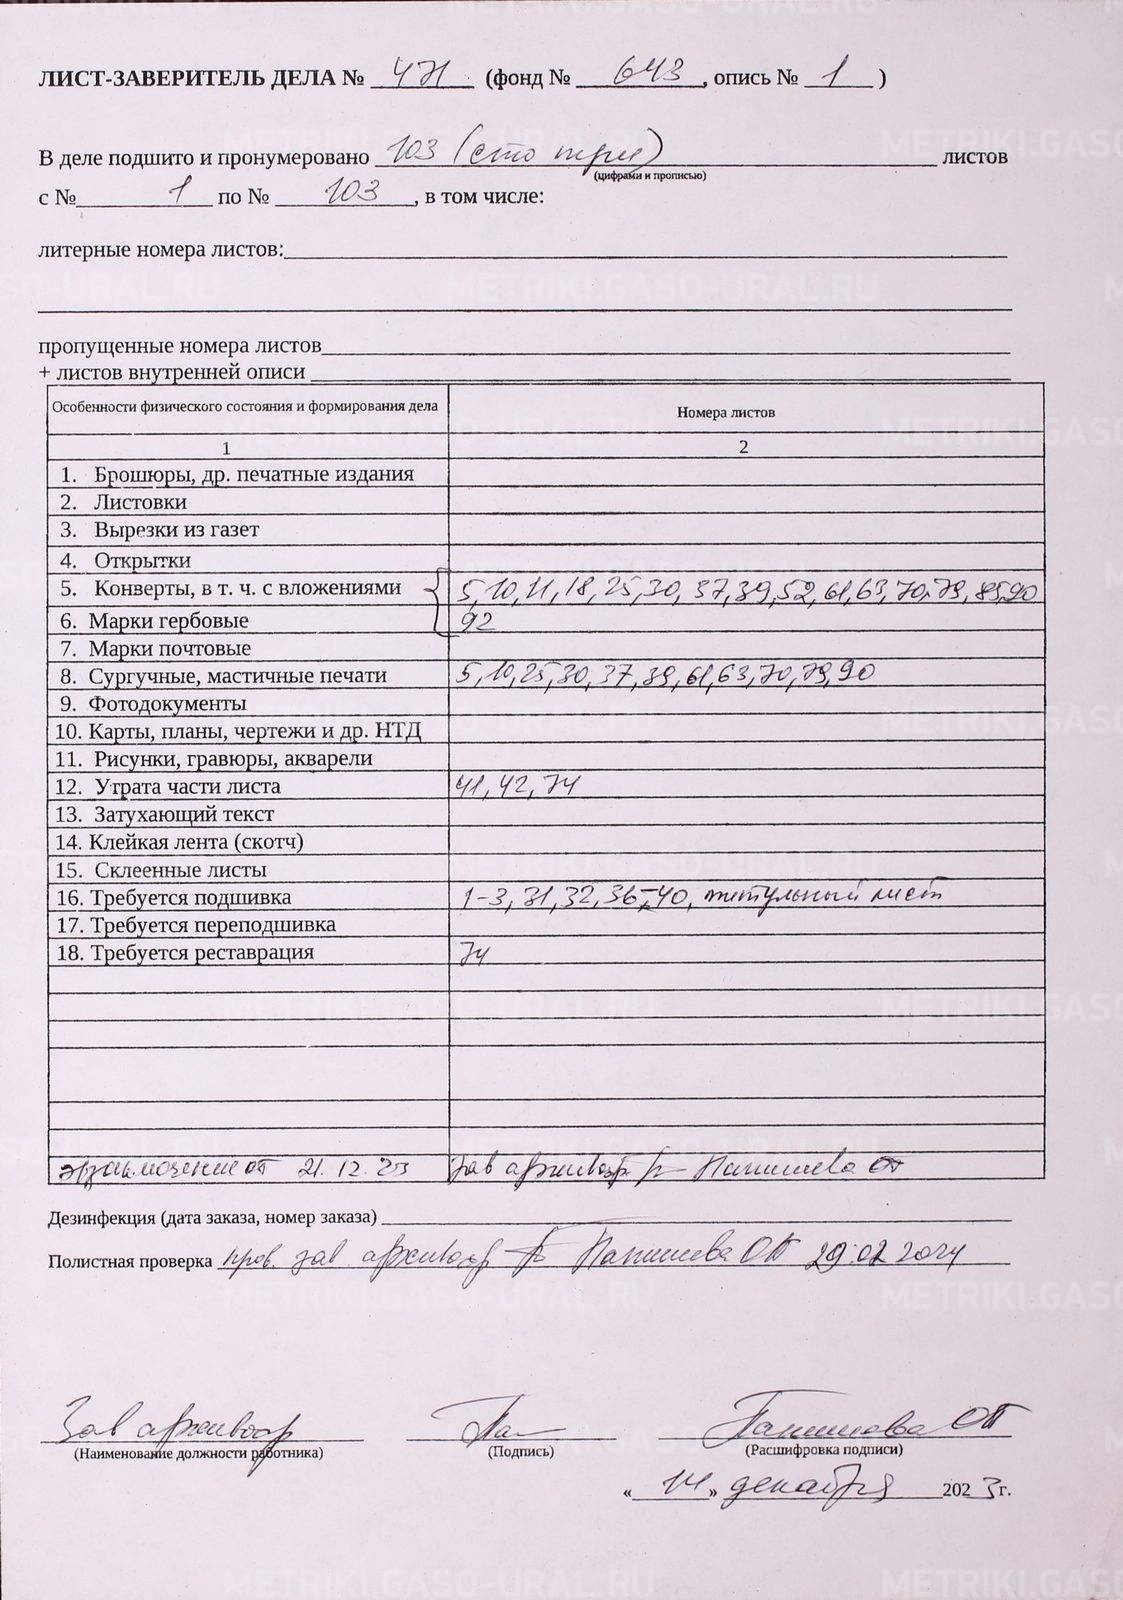 ЛИСТ-ЗАВЕРИТЕЛЬ ДЕЛА № 471 (фонд № 643, опись № 1 )
В деле подшито и пронумеровано 103 (сто три) листов
(цифрами и прописью)
с № 1 по № 103, в том числе:
литерные номера листов:
пропущенные номера листов
+ листов внутренней описи
Особенности физического состояния и формирования дела Номера листов
1 2
1. Брошюры, др. печатные издания
2. Листовки
3. Вырезки из газет
4. Открытки
5. Конверты, в т. ч. с вложениями 5,10,11,18,25,30,37,39,52,61,63,70,79,85,90
6. Марки гербовые 92
7. Марки почтовые
8. Сургучные, мастичные печати 5,10,25,30,37,39,61,63,70,79,90
9. Фотодокументы
10. Карты, планы, чертежи и др. НТД
11. Рисунки, гравюры, акварели
12. Утрата части листа 41, 42, 74
13. Затухающий текст
14. Клейкая лента (скотч)
15. Склеенные листы
16. Требуется подшивка 1-3, 31, 32, 36-40, титульный лист
17. Требуется переподшивка
18. Требуется реставрация 74
21.12.23 Зав архивохр ОП
Дезинфекция (дата заказа, номер заказа)
Полистная проверка пров. зав архивохр ОП 29.02 2024
Зав архивохр ОП
(Наименование должности работника) (Подпись) (Расшифровка подписи)
« 14 » декабря 2023г.
METRIKI.GASO-URAL.RU